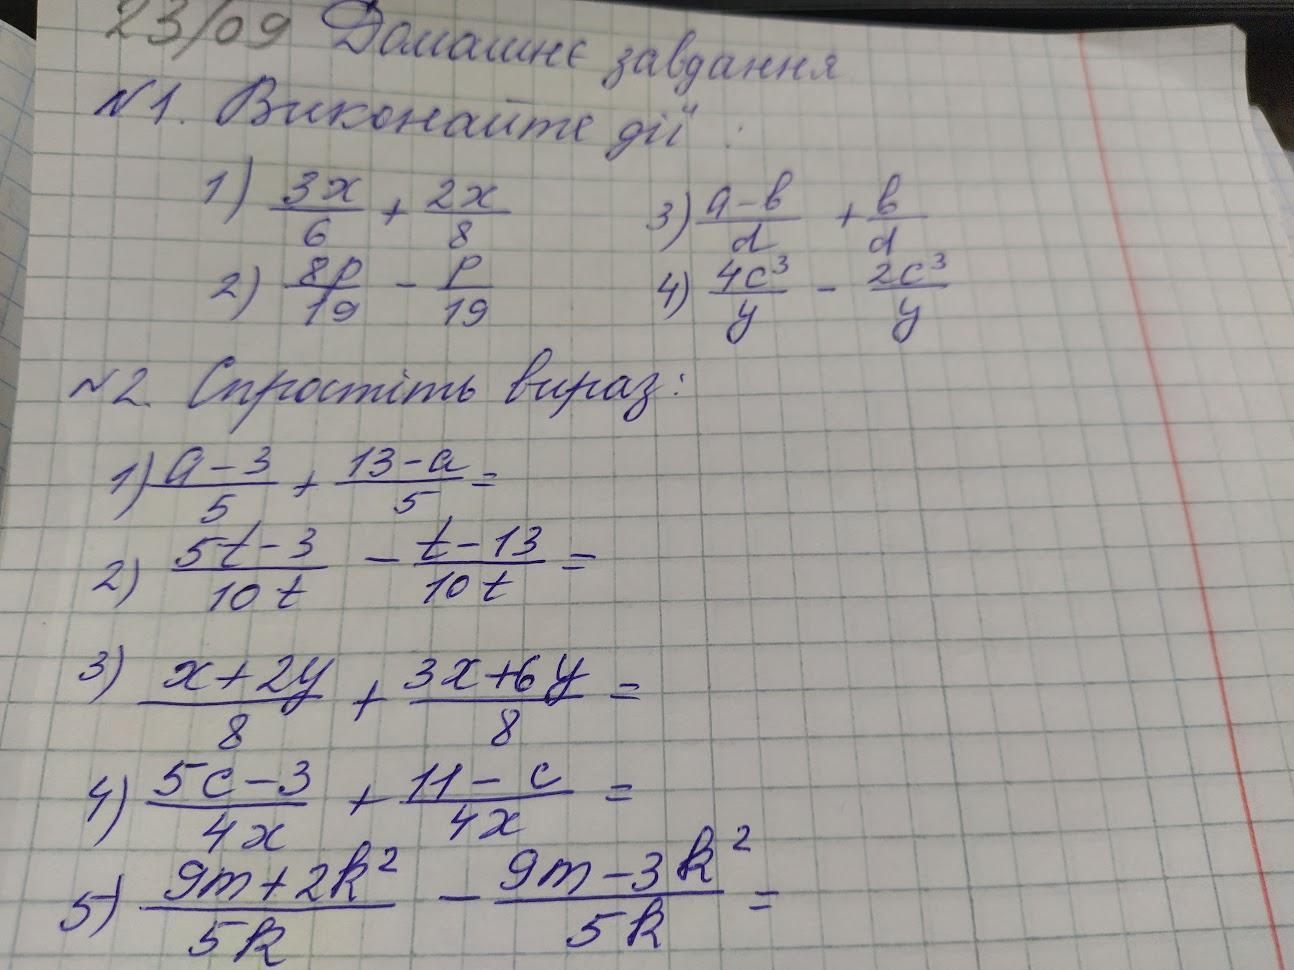 23/09 Домашнє завдання
№1. Виконайте дії :
1) 3x/6 + 2x/8 3) a-b/d + b/d
2) 8p/19 - p/19 4) 4c³/y - 2c³/y
№2. Спростіть вираз:
1) a-3/5 + 13-a/5 =
2) 5t-3/10t - t-13/10t =
3) x+2y/8 + 3x+6y/8 =
4) 5c-3/4x + 11-c/4x =
5) 9m+2k²/5k - 9m-3k²/5k =